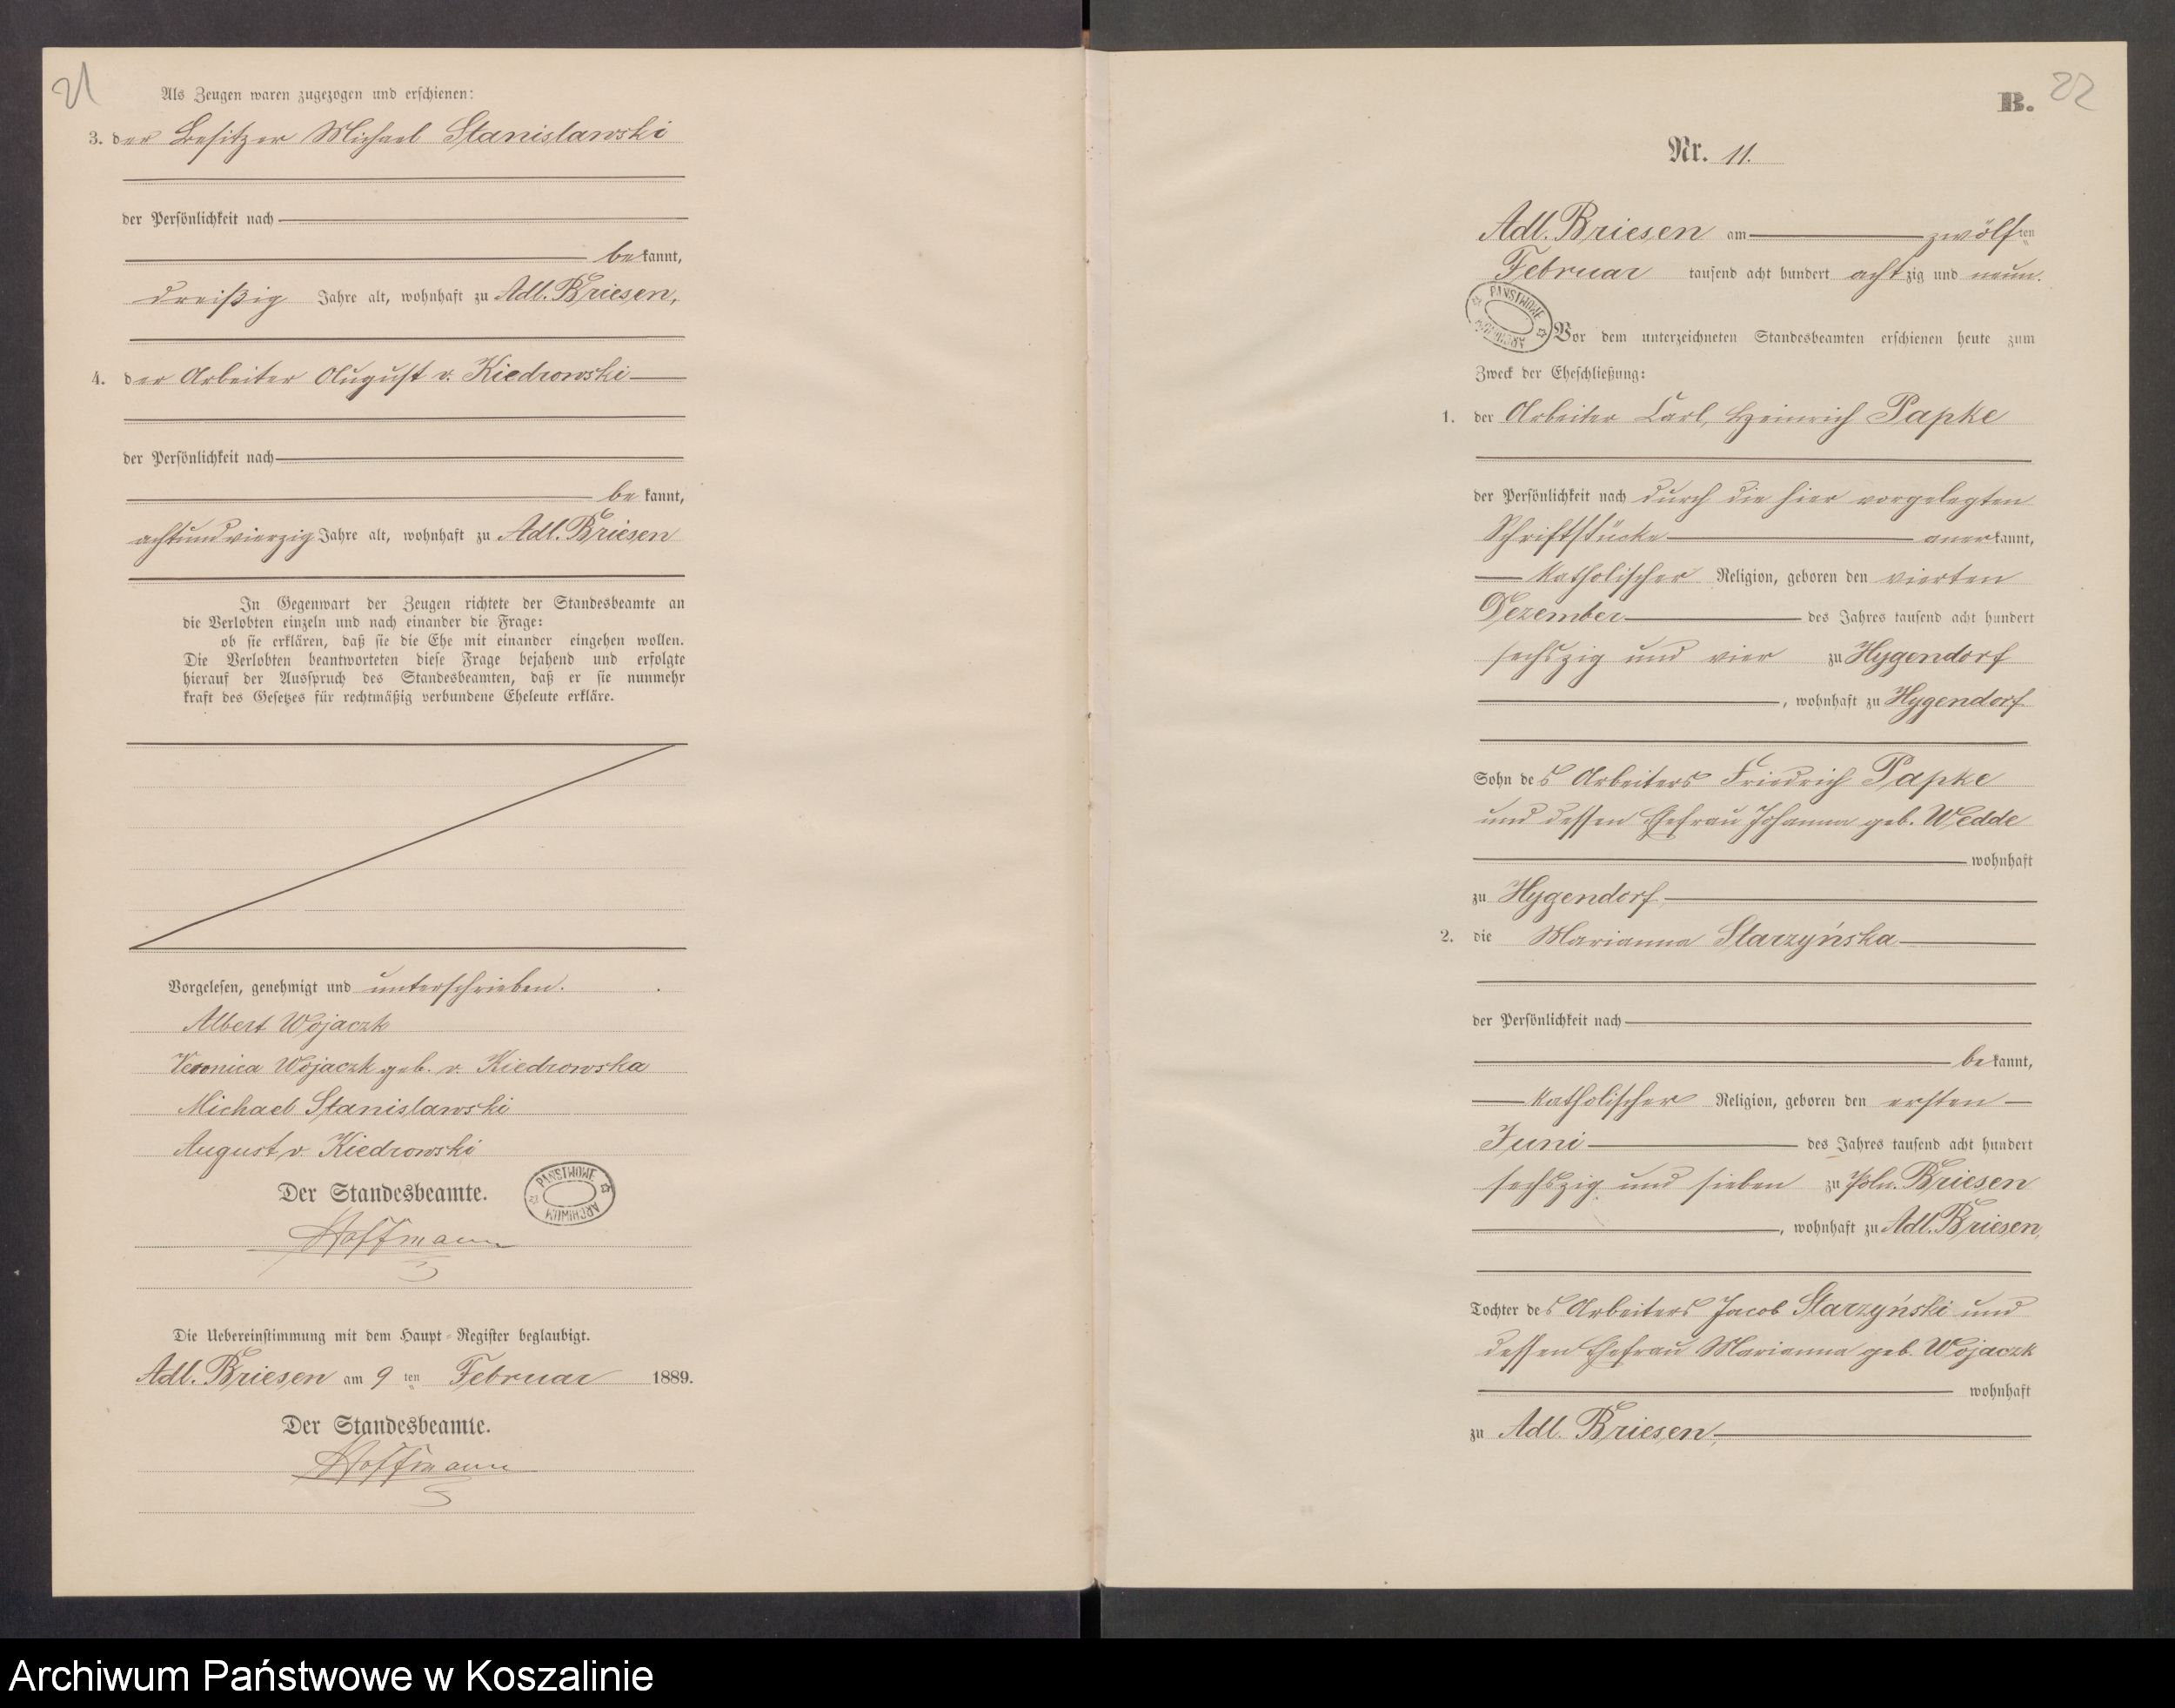 21
Als Zeugen waren zugezogen und erschienen:
3. der Besitzer Michael Stanislawski
der Persönlichkeit nach
bekannt,
dreißig Jahre alt, wohnhaft zu Adl. Briesen,
4. der Arbeiter August v. Kiedrowski
der Persönlichkeit nach
bekannt,
achtundvierzig Jahre alt, wohnhaft zu Adl. Briesen
In Gegenwart der Zeugen richtete der Standesbeamte an
die Verlobten einzeln und nach einander die Frage:
ob sie erklären, daß sie die Ehe mit einander eingehen wollen.
Die Verlobten beantworteten diese Frage bejahend und erfolgte
hierauf der Ausspruch des Standesbeamten, daß er sie nunmehr
kraft des Gesetzes für rechtmäßig verbundene Eheleute erkläre.
Vorgelesen, genehmigt und unterschrieben.
Albert Wojaczk
Veronica Wojaczk geb. v. Kiedrowska
Michael Stanislawski
August v. Kiedrowski
Der Standesbeamte.
PAŃSTWOWE ARCHIWUM
Hoffmann
Die Uebereinstimmung mit dem Haupt-Register beglaubigt.
Adl. Briesen am 9 ten Februar 1889.
Der Standesbeamte.
Hoffmann
B. 22
Nr. 11.
Adl. Briesen am zwölften
Februar tausend acht hundert achtzig und neun.
PAŃSTWOWE ARCHIWUM
Vor dem unterzeichneten Standesbeamten erschienen heute zum
Zweck der Eheschließung:
1. der Arbeiter Carl, Heinrich Papke
der Persönlichkeit nach durch die hier vorgelegten
Schriftstücke anerkannt,
katholischer Religion, geboren den vierten
Dezember des Jahres tausend acht hundert
sechszig und vier zu Hygendorf
, wohnhaft zu Hygendorf
Sohn des Arbeiters Friedrich Papke
und dessen Ehefrau Johanna geb. Wedde
wohnhaft
zu Hygendorf
2. die Marianna Starzyńska
der Persönlichkeit nach
bekannt,
katholischer Religion, geboren den ersten
Juni des Jahres tausend acht hundert
sechszig und sieben zu Poln. Briesen
, wohnhaft zu Adl. Briesen,
Tochter des Arbeiters Jacob Starzyński und
dessen Ehefrau Marianna geb. Wojaczk
wohnhaft
zu Adl. Briesen,
Archiwum Państwowe w Koszalinie